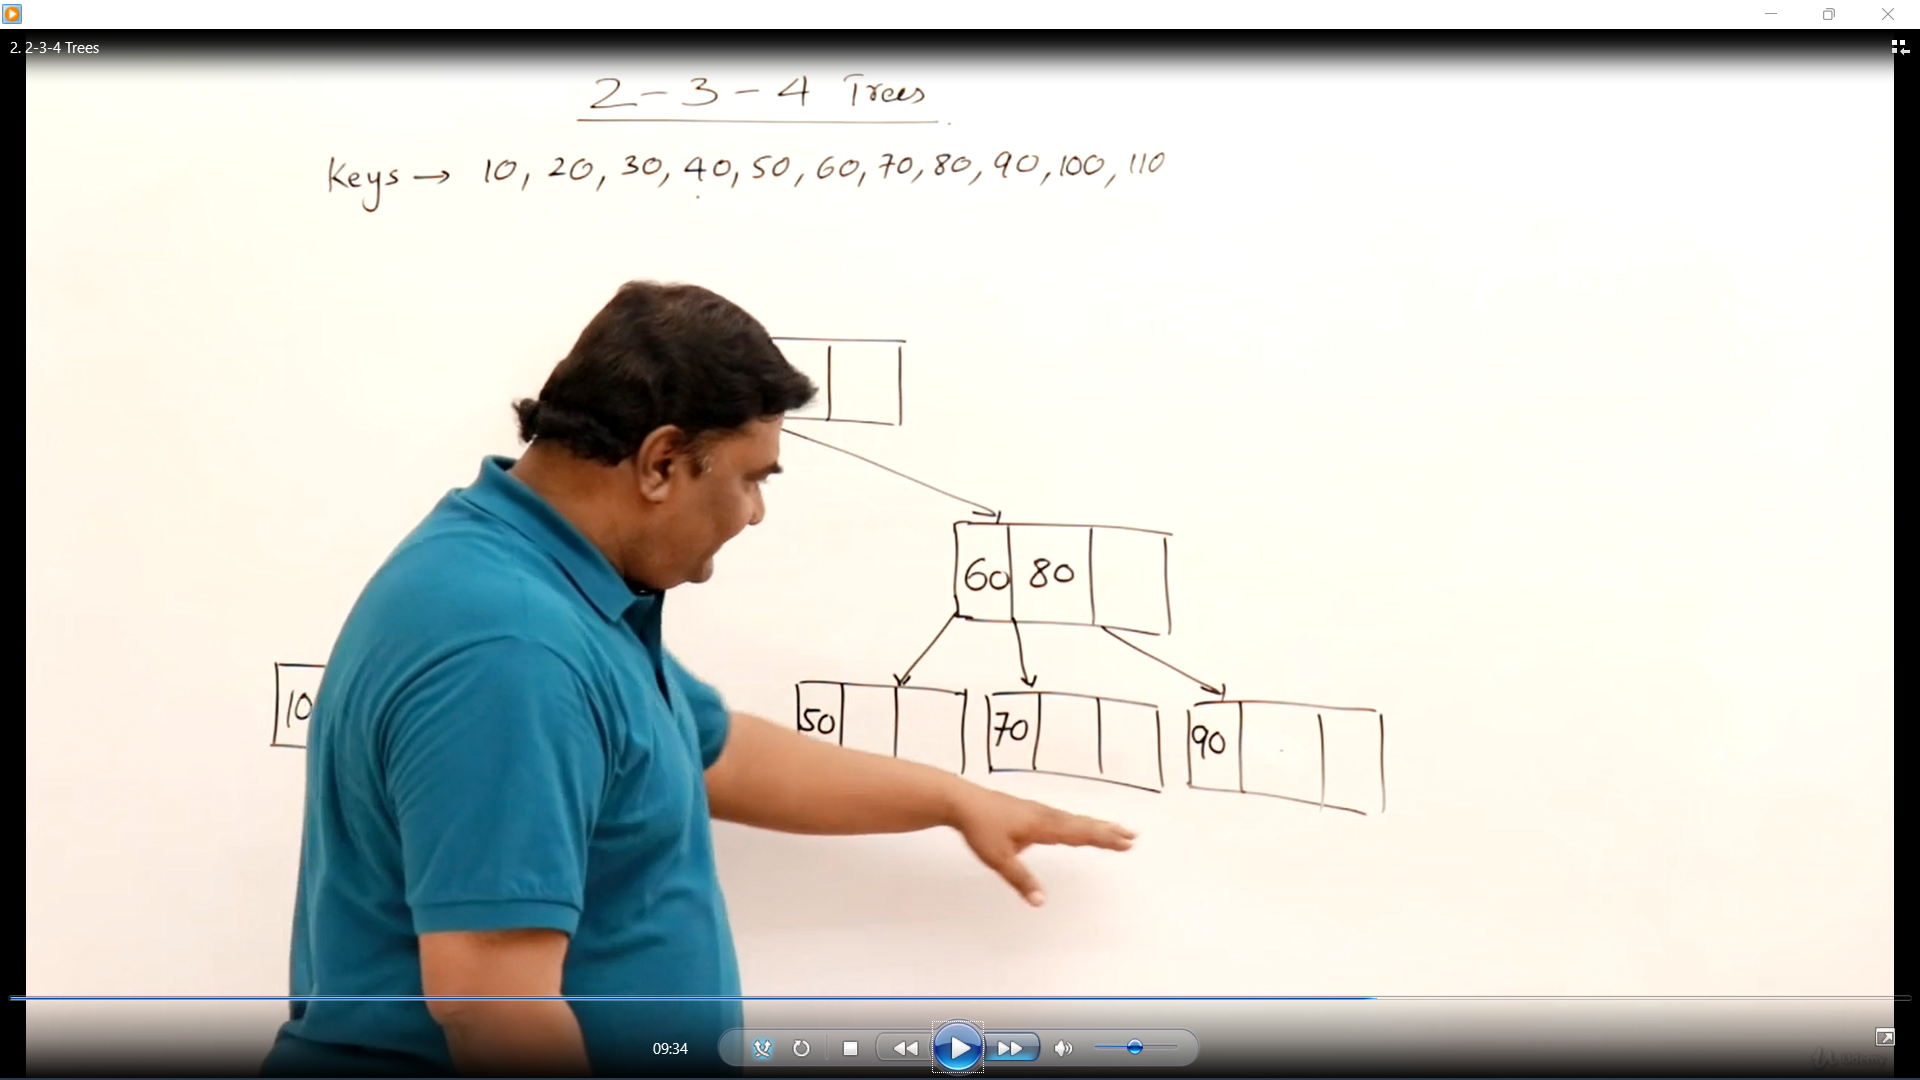 2. 2-3-4 Trees
2-3-4 Trees
Keys → 10, 20, 30, 40, 50, 60, 70, 80, 90, 100, 110
60 80
10
50
70
90
09:34
Udemy